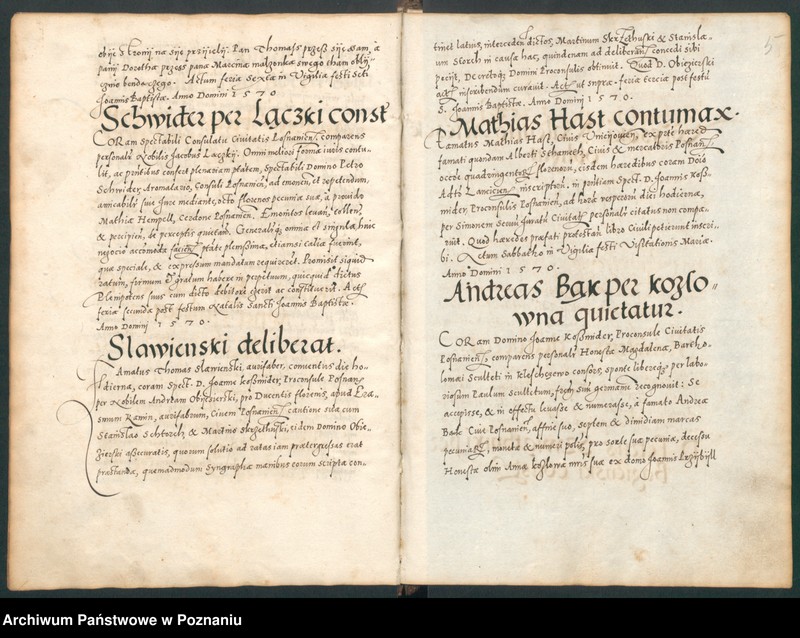 obije strony na sije przijęli. Pan Thomasz przesz sije sam, a
panij Dorothea przesz pana Marcina malzonka swego tham obli
cznie bendączego. Actum feria sexta in Vigilia festi Scti
Joannis Baptistae. Anno Domini 1570
Schwider per Lączski const
CORam Spectabili Consulatu Civitatis Posnanien. comparens
personalr Nobilis Jacobus Lączskij. Omni meliori forma iuris contu-
lit, ac pntibus confert plenariam ptatem, Spectabili Domino Petro
Schwider, Aromatario, Consuli Posnanien, ad emonen. et repetendum,
amicabili sive Jure mediante, octo florenos pecuniae suae, a provido
Mathia Hempell, Cerdone Posnanien. Emonitos levan, tollen,
& percipien, de perceptis quietand. Generaliq omnia et singula huic
negocio accomoda facien ptate plenissima, etiamsi talia fuerint,
quae speciale, & expressum mandatum requirerent. Promisit siquid
ratum, firmum & gratum habere in perpetuum, quicquid dictus
Plenipotens suus cum dicto debitore egerit ac constituerit. Act
feria secunda post festum Natalis Sancti Joannis Baptistae.
Anno Domini 1570.
Slawienski deliberat.
Famatus Thomas Slawienski, aurifaber, conventus die ho-
dierna, coram Spect. D. Joanne Koszmider, Proconsule Posnan
per Nobilem Andream Obiezierski, pro Ducentis florenis, apud Era-
smum Kamin, aurifabrum, Civem Posnanien cautione sua cum
Stanislao Schtorch, & Martino Skrzethuski, eidem Domino Obie-
zierski assecuratis, quorum solutio ad ratas iam praetergressas erat
praestanda, quemadmodum Syngrapha manibus eorum scripta con-
5
tinet latius, interceden dictos, Martinum Skrzethuski & Stanisla-
um Storch in causa hac, quindenam ad deliberan concedi sibi
peciit, De cretoq Domini Proconsulis obtinuit. Quod D. Obiezierski
act inscribendum curavit. Act ut supra. feria tercia post festu
S. Joannis Baptistae. Anno Domini 1570.
Mathias Hast contumax.
Famatus Mathias Hast, Civis Vnieijovien, ex pte hared
famati quondam Alberti Schamech, Civis & mercatoris Posnan
occoe quadringentor florenoru, eisdem haeredibus coram Dcio
Actis Lancicien inscriptoru. in pntiam Spect. D. Joannis Kosz-
mider, Proconsulis Posnanien, ad hora vesperoru diei hodiernae,
per Simonem Servu Juratu Civitat personalr citatus non compa-
ruit. Quod haeredes praefati protestati libro Civili petierunt inscri-
bi. Actum Sabbatho in Vigilia festi Visitationis Mariae.
Anno Domini 1570.
Andreas Bąk per kozlo-
wna quietatur.
CORam Domino Joanne Koszmider, Proconsule Civitatis
Posnanien, comparens personalr Honesta Magdalena, Bartho-
lomaei Sculteti in Kleschczewo consors, sponte libereq per labo-
riosum Paulum Scultetum, frem sui germanu recognovit: Se
accepisse, & in effectu levasse & numerasse, a famato Andrea
Bąk Cive Posnanien, affine suo, septem & dimidiam marcas
pecuniae, moneta & numeri polnis, pro sorte sua pecunia, decessu
Honestae olim Annae kozlowa mris suae ex domo Joannis Krzijsijll